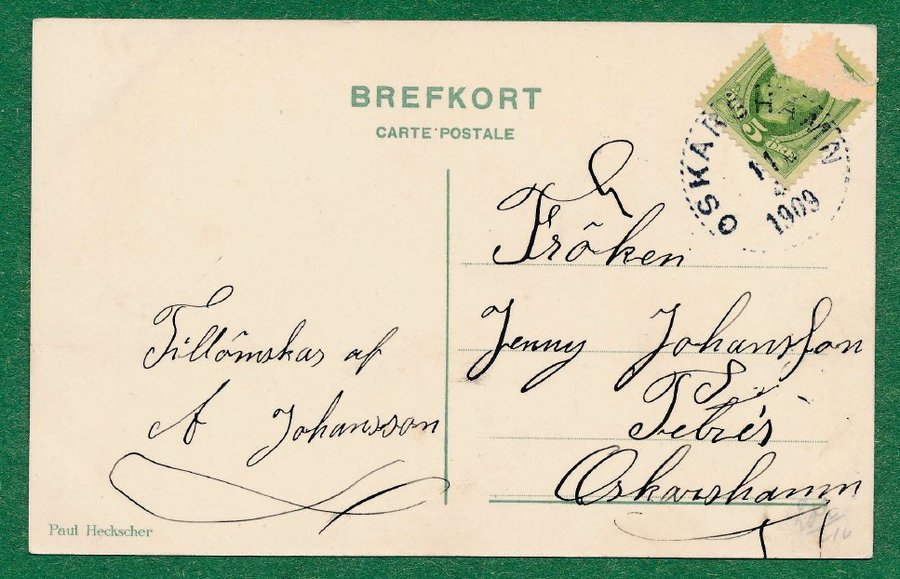 BREFKORT
CARTE POSTALE
OSKARSHAMN
11
1909
5
Fröken
Jenny Johansson
Oskarshamn
Tillönskas af
A Johansson
Paul Heckscher